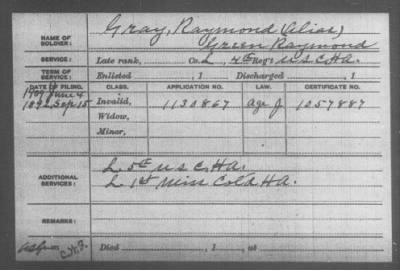 NAME OF SOLDIER: Gray, Raymond (Alias)
Green Raymond
SERVICE: Late rank, Co. L, 4th Reg't U S C H A.
TERM OF SERVICE: Enlisted , 1 Discharged , 1
DATE OF FILING. CLASS. APPLICATION NO. LAW. CERTIFICATE NO.
1907 June 4
1892 Sep 15 Invalid, 1130867 1057887
Widow,
Minor,
ADDITIONAL SERVICES: L. 5th U S C, H A.
L. 1st Miss Cold H A.
REMARKS:
Died , 1 , at